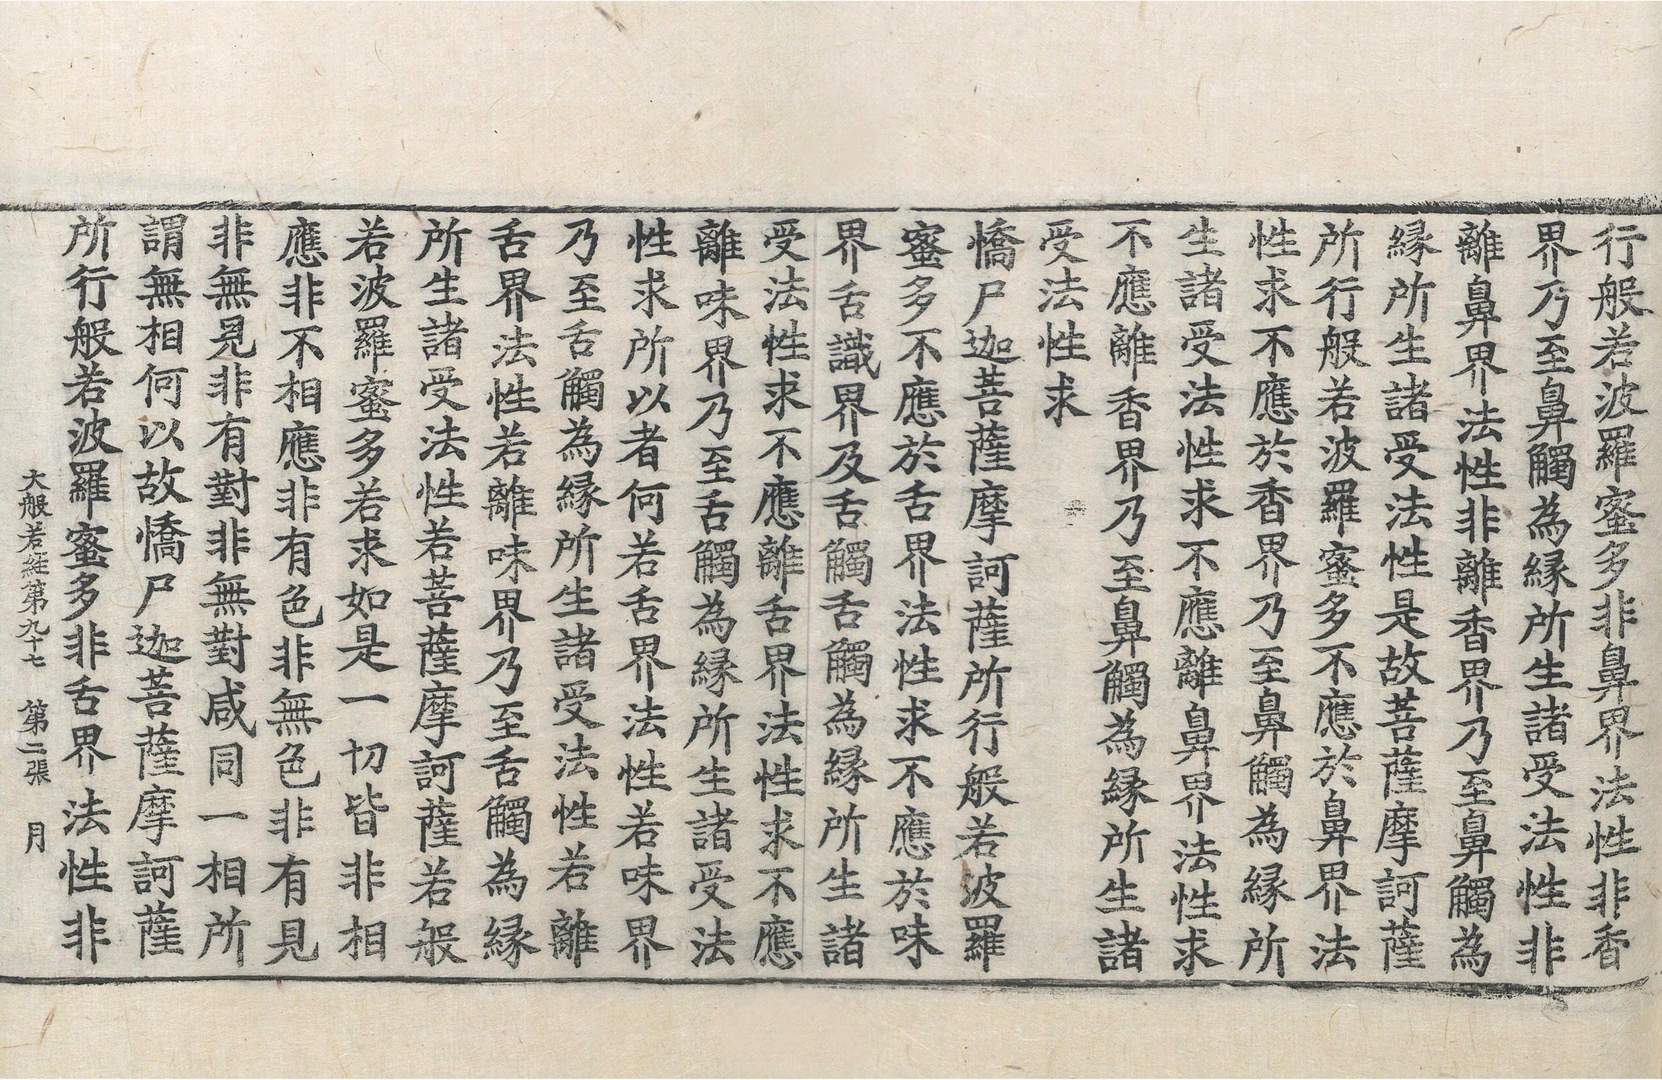 行般若波羅蜜多非鼻界法性非香
界乃至鼻觸為緣所生諸受法性非
離鼻界法性非離香界乃至鼻觸為
緣所生諸受法性是故菩薩摩訶薩
所行般若波羅蜜多不應於鼻界法
性求不應於香界乃至鼻觸為緣所
生諸受法性求不應離鼻界法性求
不應離香界乃至鼻觸為緣所生諸
受法性求
憍尸迦菩薩摩訶薩所行般若波羅
蜜多不應於舌界法性求不應於味
界舌識界及舌觸舌觸為緣所生諸
受法性求不應離舌界法性求不應
離味界乃至舌觸為緣所生諸受法
性求所以者何若舌界法性若味界
乃至舌觸為緣所生諸受法性若離
舌界法性若離味界乃至舌觸為緣
所生諸受法性若菩薩摩訶薩若般
若波羅蜜多若求如是一切皆非相
應非不相應非有色非無色非有見
非無見非有對非無對咸同一相所
謂無相何以故憍尸迦菩薩摩訶薩
所行般若波羅蜜多非舌界法性非
大般若經第九十七 第二張 月